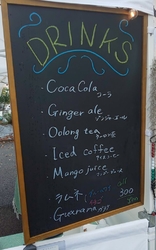 DRINKS
・CocaCola
コーラ
・Ginger ale
ジンジャーエール
・Oolong tea
ウーロン茶
・Iced coffee
アイスコーヒー
・Mango juice
マンゴージュース
・ラムネ
300
・Guarana